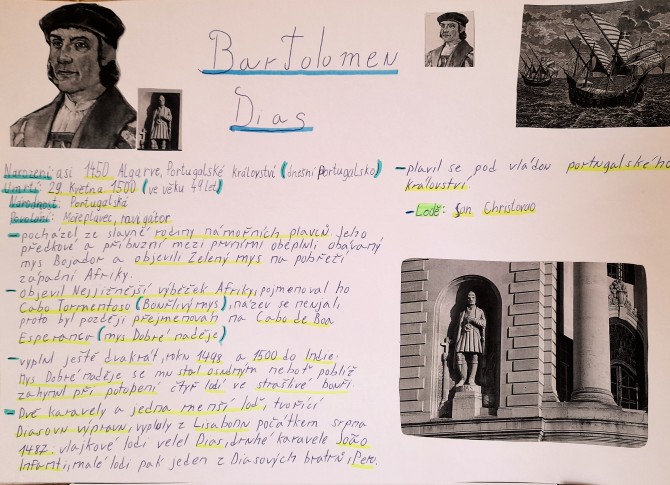 Bartolomen
Dias
Narození asi 1450 Algarve, Portugalské království (dnešní Portugalsko)
Úmrtí: 29. Května 1500 (ve věku 49 let)
Národnost: Portugalská
Povolání: Mořeplavec, navigátor
- pocházel ze slavné rodiny námořních plavců Jeho
předkové a příbuzní mezi prvními obepluli obávaný
mys Bojador a objevili Zelený mys na pobřeží
západní Afriky.
- objevil Nejjižnější výběžek Afriky, pojmenoval ho
Cabo Tormentoso (Bouřlivý mys), název se neujal,
proto byl později přejmenován na Cabo de Boa
Esperanca (mys Dobré naděje)
- vyplul ještě dvakrát, roku 1498 a 1500 do Indie.
Mys Dobré naděje se mu stal osudným neboť poblíž
zahynul při potopení čtyř lodí ve strašlivé bouři.
- Dvě karavely a jedna menší loď, tvořící
Diasovu výpravu, vypluly z Lisabonu počátkem srpna
1487. vlajkové lodi velel Dias, druhé karavele João
Infanti, malé lodi pak jeden z Diasových bratrů, Pero.
- plavil se pod vládou portugalského
království
- Lodě: Sun Christovao